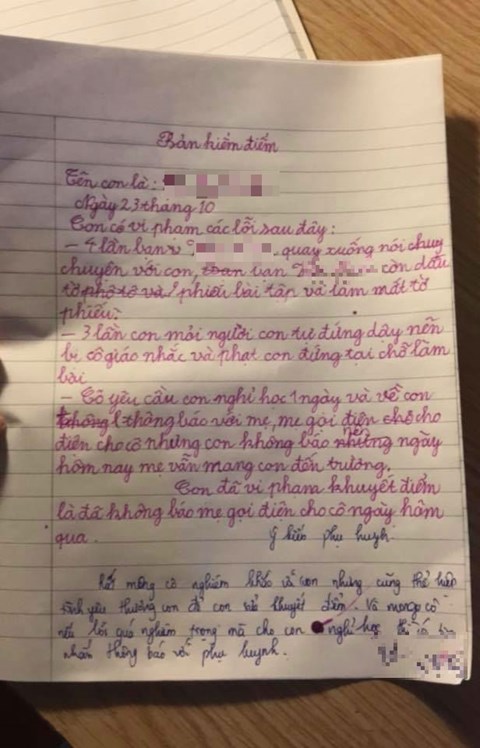 Bản kiểm điểm
Tên con là:
Ngày 23 tháng 10
Con có vi phạm các lỗi sau đây:
- 4 lần bạn quay xuống nói chuy
chuyện với con, bạn còn dấu
tờ phô tô và phiếu bài tập và làm mất tờ
phiếu.
- 3 lần con mỏi người con tự đứng dậy nên
bị cô giáo nhắc và phạt con đứng tại chỗ làm
bài
- Cô yêu cầu con nghỉ học 1 ngày và về con
không không báo với mẹ, mẹ gọi điện cho cho
điện cho cô nhưng con không báo nên ngày
hôm nay mẹ vẫn mang con đến trường.
Con đã vi phạm khuyết điểm
là đã không báo mẹ gọi điện cho cô ngày hôm
qua.
Ý kiến phụ huynh.
Rất mong cô nghiêm khắc với con nhưng cũng thể hiện
tình yêu thương con để con sửa khuyết điểm. Và mong cô
nếu lỗi quá nghiêm trọng mà cho con nghỉ học thì có tin
nhắn thông báo với phụ huynh.